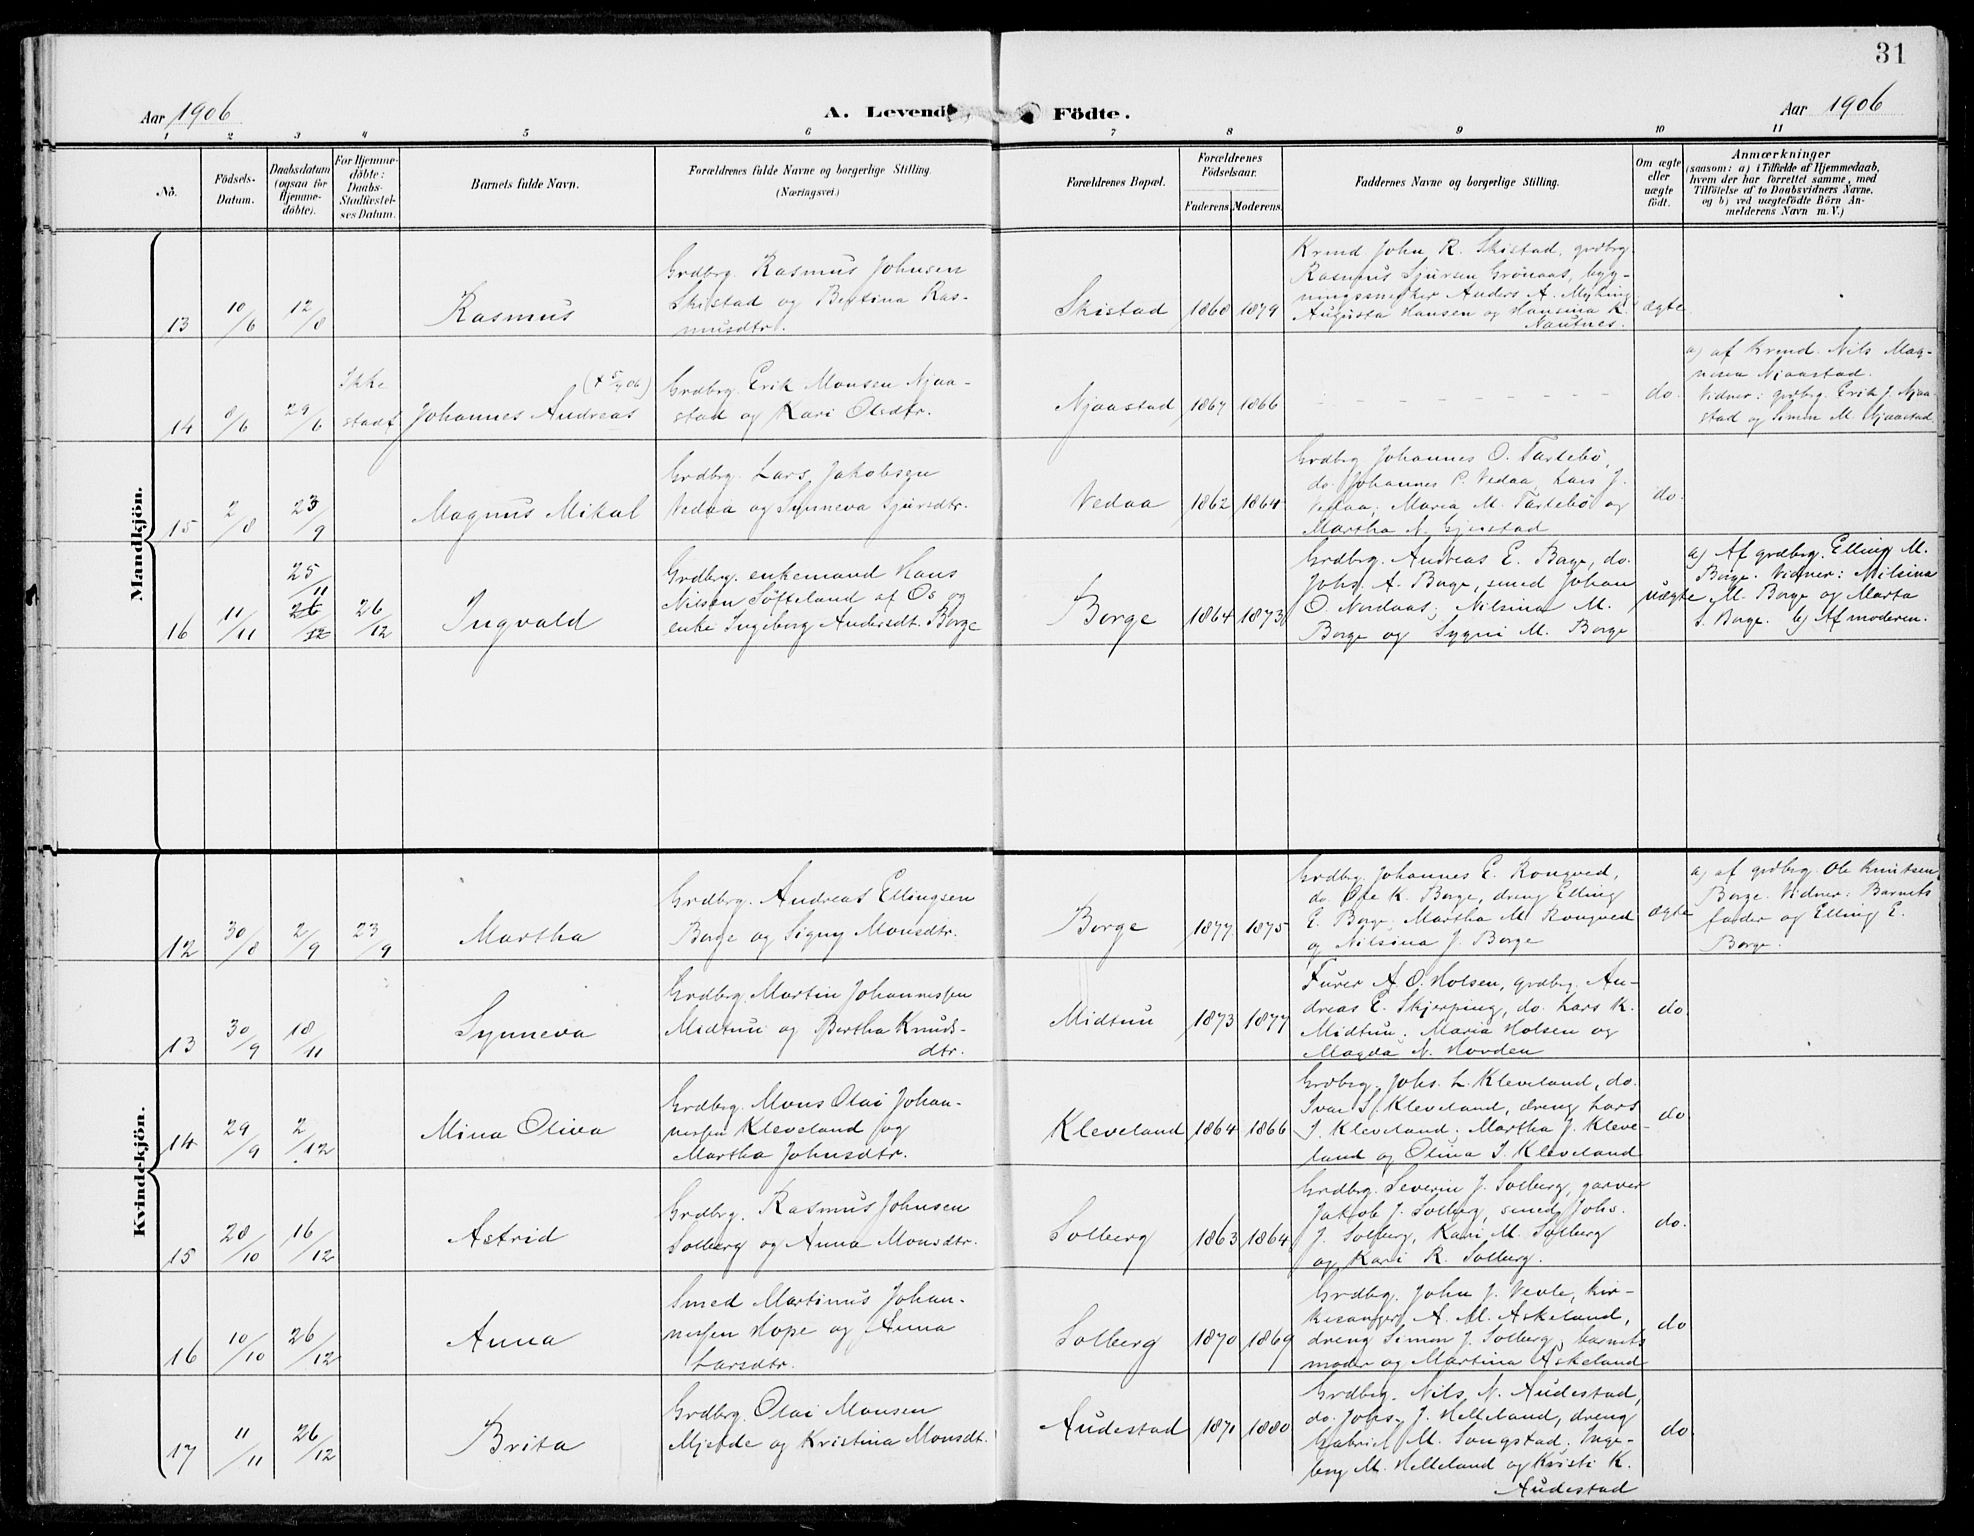 31
Aar 1906
A. Levende Födte.
Aar 1906
1 2 3 4 5 6 7 8 9 10 11
No.
Födsels-
Datum.
Daabsdatum
(ogsaa för
Hjemme-
döbte).
For Hjemme-
döbte:
Daabs-
Stadfæstel-
ses Datum.
Barnets fulde Navn.
Forældrenes fulde Navne og borgerlige Stilling.
(Næringsvei.)
Forældrenes Bopæl.
Forældrenes
Födselsaar.
Faderens. Moderens.
Faddernes Navne og borgerlige Stilling.
Om ægte
eller
uægte
födt.
Anmærkninger
(saasom: a) i Tilfælde af Hjemmedaab,
hvem der har forrettet samme, med
Tilföielse af to Daabsvidners Navne,
og b) ved uægtefödte Börn An-
melderens Navn m. V.)
Mandkjön.
13
10/6
12/8
Rasmus
Grdbrg. Rasmus Johnsen
Skistad og Bertina Ras-
musdtr.
Skistad
1868
1879
Krmd John R. Skistad, grdbrg.
Rasmus Sjursen Grönaas, byg-
ningssnekker Anders A. Myking
Augusta Hansen og Hansina K.
Nautnes.
ægte
14
8/6
29/6
Ikke
stadf
(+ 5/7 06)
Johannes Andreas
Grdbrg. Erik Monsen Njaa-
stad og Kari Olsdtr.
Njaastad
1867
1866
do.
a) af Krmd. Nils Mag-
nesen Njaastad.
Vidner: grdbrg. Erik J. Njaa-
stad og Simon M. Njaastad.
15
2/8
23/9
Magnus Mikal
Grdbrg. Lars Jakobsen
Vedaa og Synneva Sjursdtr.
Vedaa
1862
1864
Grdbrg Johannes O. Tartebö,
do. Johannes P. Vedaa, Lars J.
Vedaa; Maria M. Tartebö og
Martha N. Gjerstad
do.
16
11/11
25/11
26/12
26/12
Ingvald
Grdbrg. enkemand Hans
Nilsen Söfteland af Os og
enke Ingeborg Andersdt. Borge
Borge
1864
1873
Grdbrg. Andreas E. Borge, do.
Johs. A. Borge, smed Johan
O. Nordaas; Nilsina M.
Borge og Sygni M. Borge
uægte
a) Af grdbrg. Elling M.
Borge. Vidner: Milsina
M. Borge og Marta
S. Borge. b) Af moderen.
Kvindekjön.
12
30/8
2/9
23/9
Martha
Grdbrg. Andreas Ellingsen
Borge og Signy Monsdtr.
Borge
1877
1875
Grdbrg. Johannes E. Rongved,
do. Ole K. Borge, dreng Elling
E. Borge, Martha M. Rongved
og Nilsina J. Borge
ægte
a) af grdbrg. Ole Knutsen
Borge. Vidner: Barnets
fader og Elling E.
Borge.
13
30/9
18/11
Synneva
Grdbrg. Martin Johannessen
Midtun og Bertha Knuds-
dtr.
Midtun
1873
1877
Furer A. O. Holsen, grdbrg. An-
dreas E. Skjerping, do. Lars K.
Midtun; Maria Holsen og
Magda N. Hovden
do.
14
29/9
2/12
Mina Oliva
Grdbrg. Mons Olai Johan-
nessen Kleveland og
Martha Johnsdtr.
Kleveland
1864
1866
Grdbrg. Johs. L. Kleveland, do.
Ivar S. Kleveland, dreng Lars
J. Kleveland; Martha J. Kleve-
land og Olina J. Kleveland
do
15
28/10
16/12
Astrid
Grdbrg. Rasmus Johnsen
Solberg og Anna Monsdtr.
Solberg
1863
1864
Grdbrg. Severin J. Solberg, garver
Jakob J. Solberg, smed Johs.
J. Solberg, Kari M. Solberg
og Kari R. Solberg.
do.
16
10/10
26/12
Anna
Smed Martinus Johan-
nessen Hope og Anna
Larsdtr.
Solberg
1870
1869
Grdbrg. John J. Veole, kir-
kesanger A. M. Askeland,
dreng Simon J. Solberg, barnets
moder og Martina Askeland
do
17
11/11
26/12
Brita
Grdbrg. Olai Monsen
Mjelde og Kristina Monsdt.
Audestad
1871
1880
Grdbrg. Nils N. Audestad,
do. Johs. J. Helleland, dreng
Gabriel M. Songstad; Inge-
borg M. Helleland og Kristi K.
Audestad
do